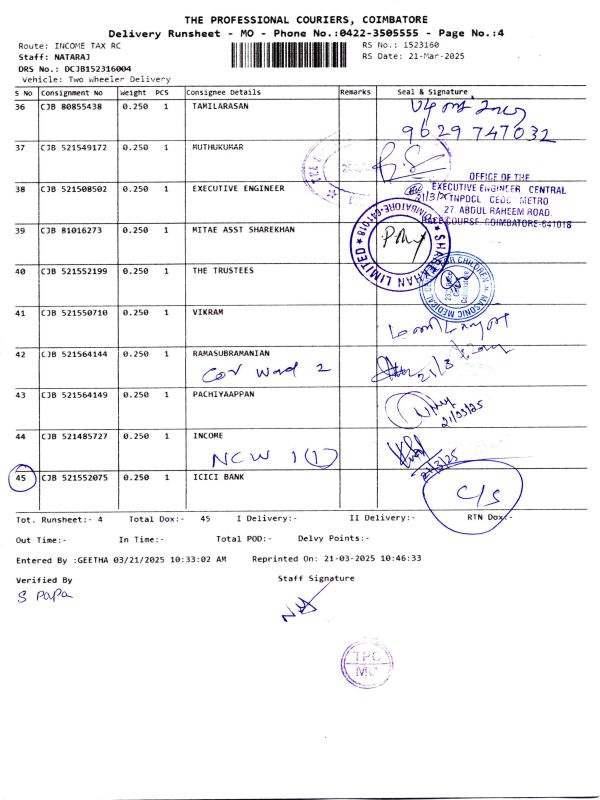 THE PROFESSIONAL COURIERS, COIMBATORE
Delivery Runsheet - MO - Phone No.:0422-3505555 - Page No.:4
Route: INCOME TAX RC
RS No.: 1523160
Staff: NATARAJ
RS Date: 21-Mar-2025
DRS No.: DCJB152316004
Vehicle: Two Wheeler Delivery
S No Consignment No Weight PCS Consignee Details Remarks Seal & Signature
36 CJB 80855438 0.250 1 TAMILARASAN
9629747032
37 CJB 521549172 0.250 1 MUTHUKUMAR
38 CJB 521508502 0.250 1 EXECUTIVE ENGINEER
OFFICE OF THE
EXECUTIVE ENGINEER CENTRAL
TNPDCL CEDC METRO
27. ABDUL RAHEEM ROAD.
RACE COURSE. COIMBATORE-641018
39 CJB 81016273 0.250 1 MITAE ASST SHAREKHAN
SHAREKHAN LIMITED ★ COIMBATORE-641018 ★
40 CJB 521552199 0.250 1 THE TRUSTEES
41 CJB 521550710 0.250 1 VIKRAM
42 CJB 521564144 0.250 1 RAMASUBRAMANIAN
Cor Ward 2
21/3
43 CJB 521564149 0.250 1 PACHIYAAPPAN
21/03/25
44 CJB 521485727 0.250 1 INCOME
NCW 1(1)
21/3/25
45 CJB 521552075 0.250 1 ICICI BANK
C/S
Tot. Runsheet:- 4 Total Dox:- 45 I Delivery:- II Delivery:- RTN Dox:-
Out Time:- In Time:- Total POD:- Delvy Points:-
Entered By :GEETHA 03/21/2025 10:33:02 AM Reprinted On: 21-03-2025 10:46:33
Verified By Staff Signature
S PaPa
TPC
MC